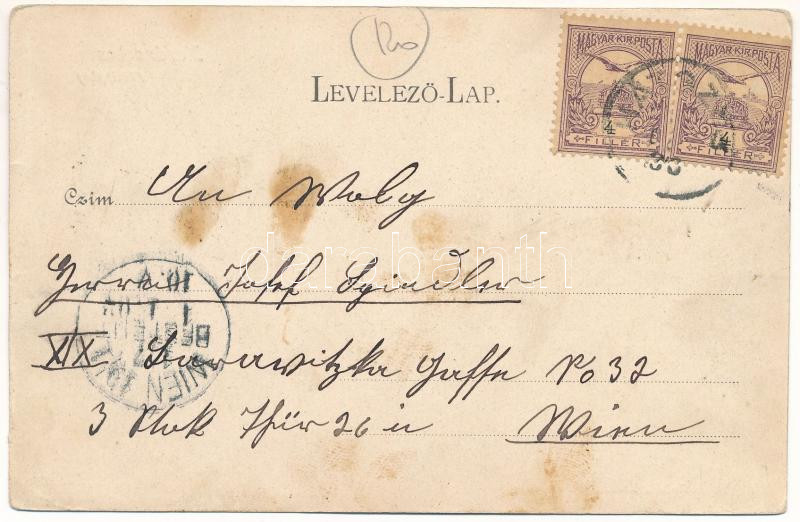 Ro
LEVELEZŐ-LAP.
MAGYAR KIR. POSTA MAGYAR KIR. POSTA
4 4
FILLÉR FILLÉR
Czim An Wolg
Herrn Josef Spindler
darabanth
XIX Barawitzka Gasse No 32
3 Stok Thür 26 in Wien
WIEN
BESTELLT